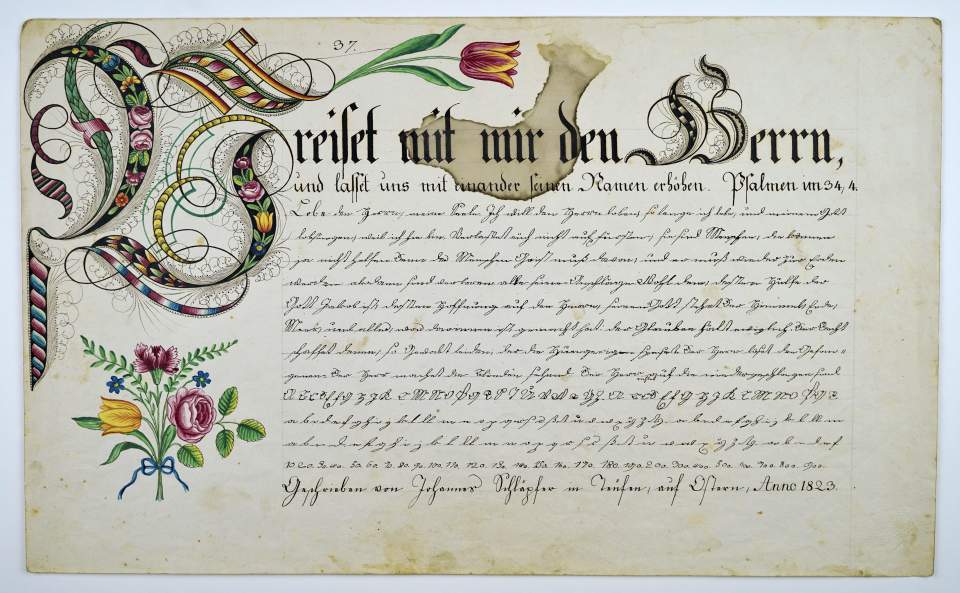 37.
Preiset mit mir den Herrn,
und lasset uns mit einander seinen Namen erhöhen. Psalmen im 34, 4.
Lobe den Herrn, meine Seele. Ich will den Herrn loben, so lange ich lebe, und meinem Gott
lobsingen, weil ich hie bin. Verlasset euch nicht auf Fürsten, sie sind Menschen, die können
ja nicht helfen. Denn des Menschen Geist muß davon, und er muß wieder zur Erden
werden alsdann sind verloren alle seine Anschläge. Wohl dem, dessen Hülfe der
Gott Jakobs ist, dessen Hoffnung auf den Herrn, seinen Gott stehet der Himmel, Erde,
Meer, und alles, was darinnen ist, gemacht hat. der Glauben hält ewiglich. Der Recht
schaffet denen, so Gewalt leiden, der die Hungerigen speiset. Der Herr löset die Gefan=
genen. Der Herr machet die Blinden sehend. Der Herr richtet auf die niedergeschlagen sind
10. 20. 30. 40. 50. 60. 70. 80. 90. 100. 110. 120. 130. 140. 150. 160. 170. 180. 190. 200. 300. 400. 500. 600. 700. 800. 900.
Geschrieben von Johannes Schläpfer in Teüfen, auf Ostern, Anno 1823.